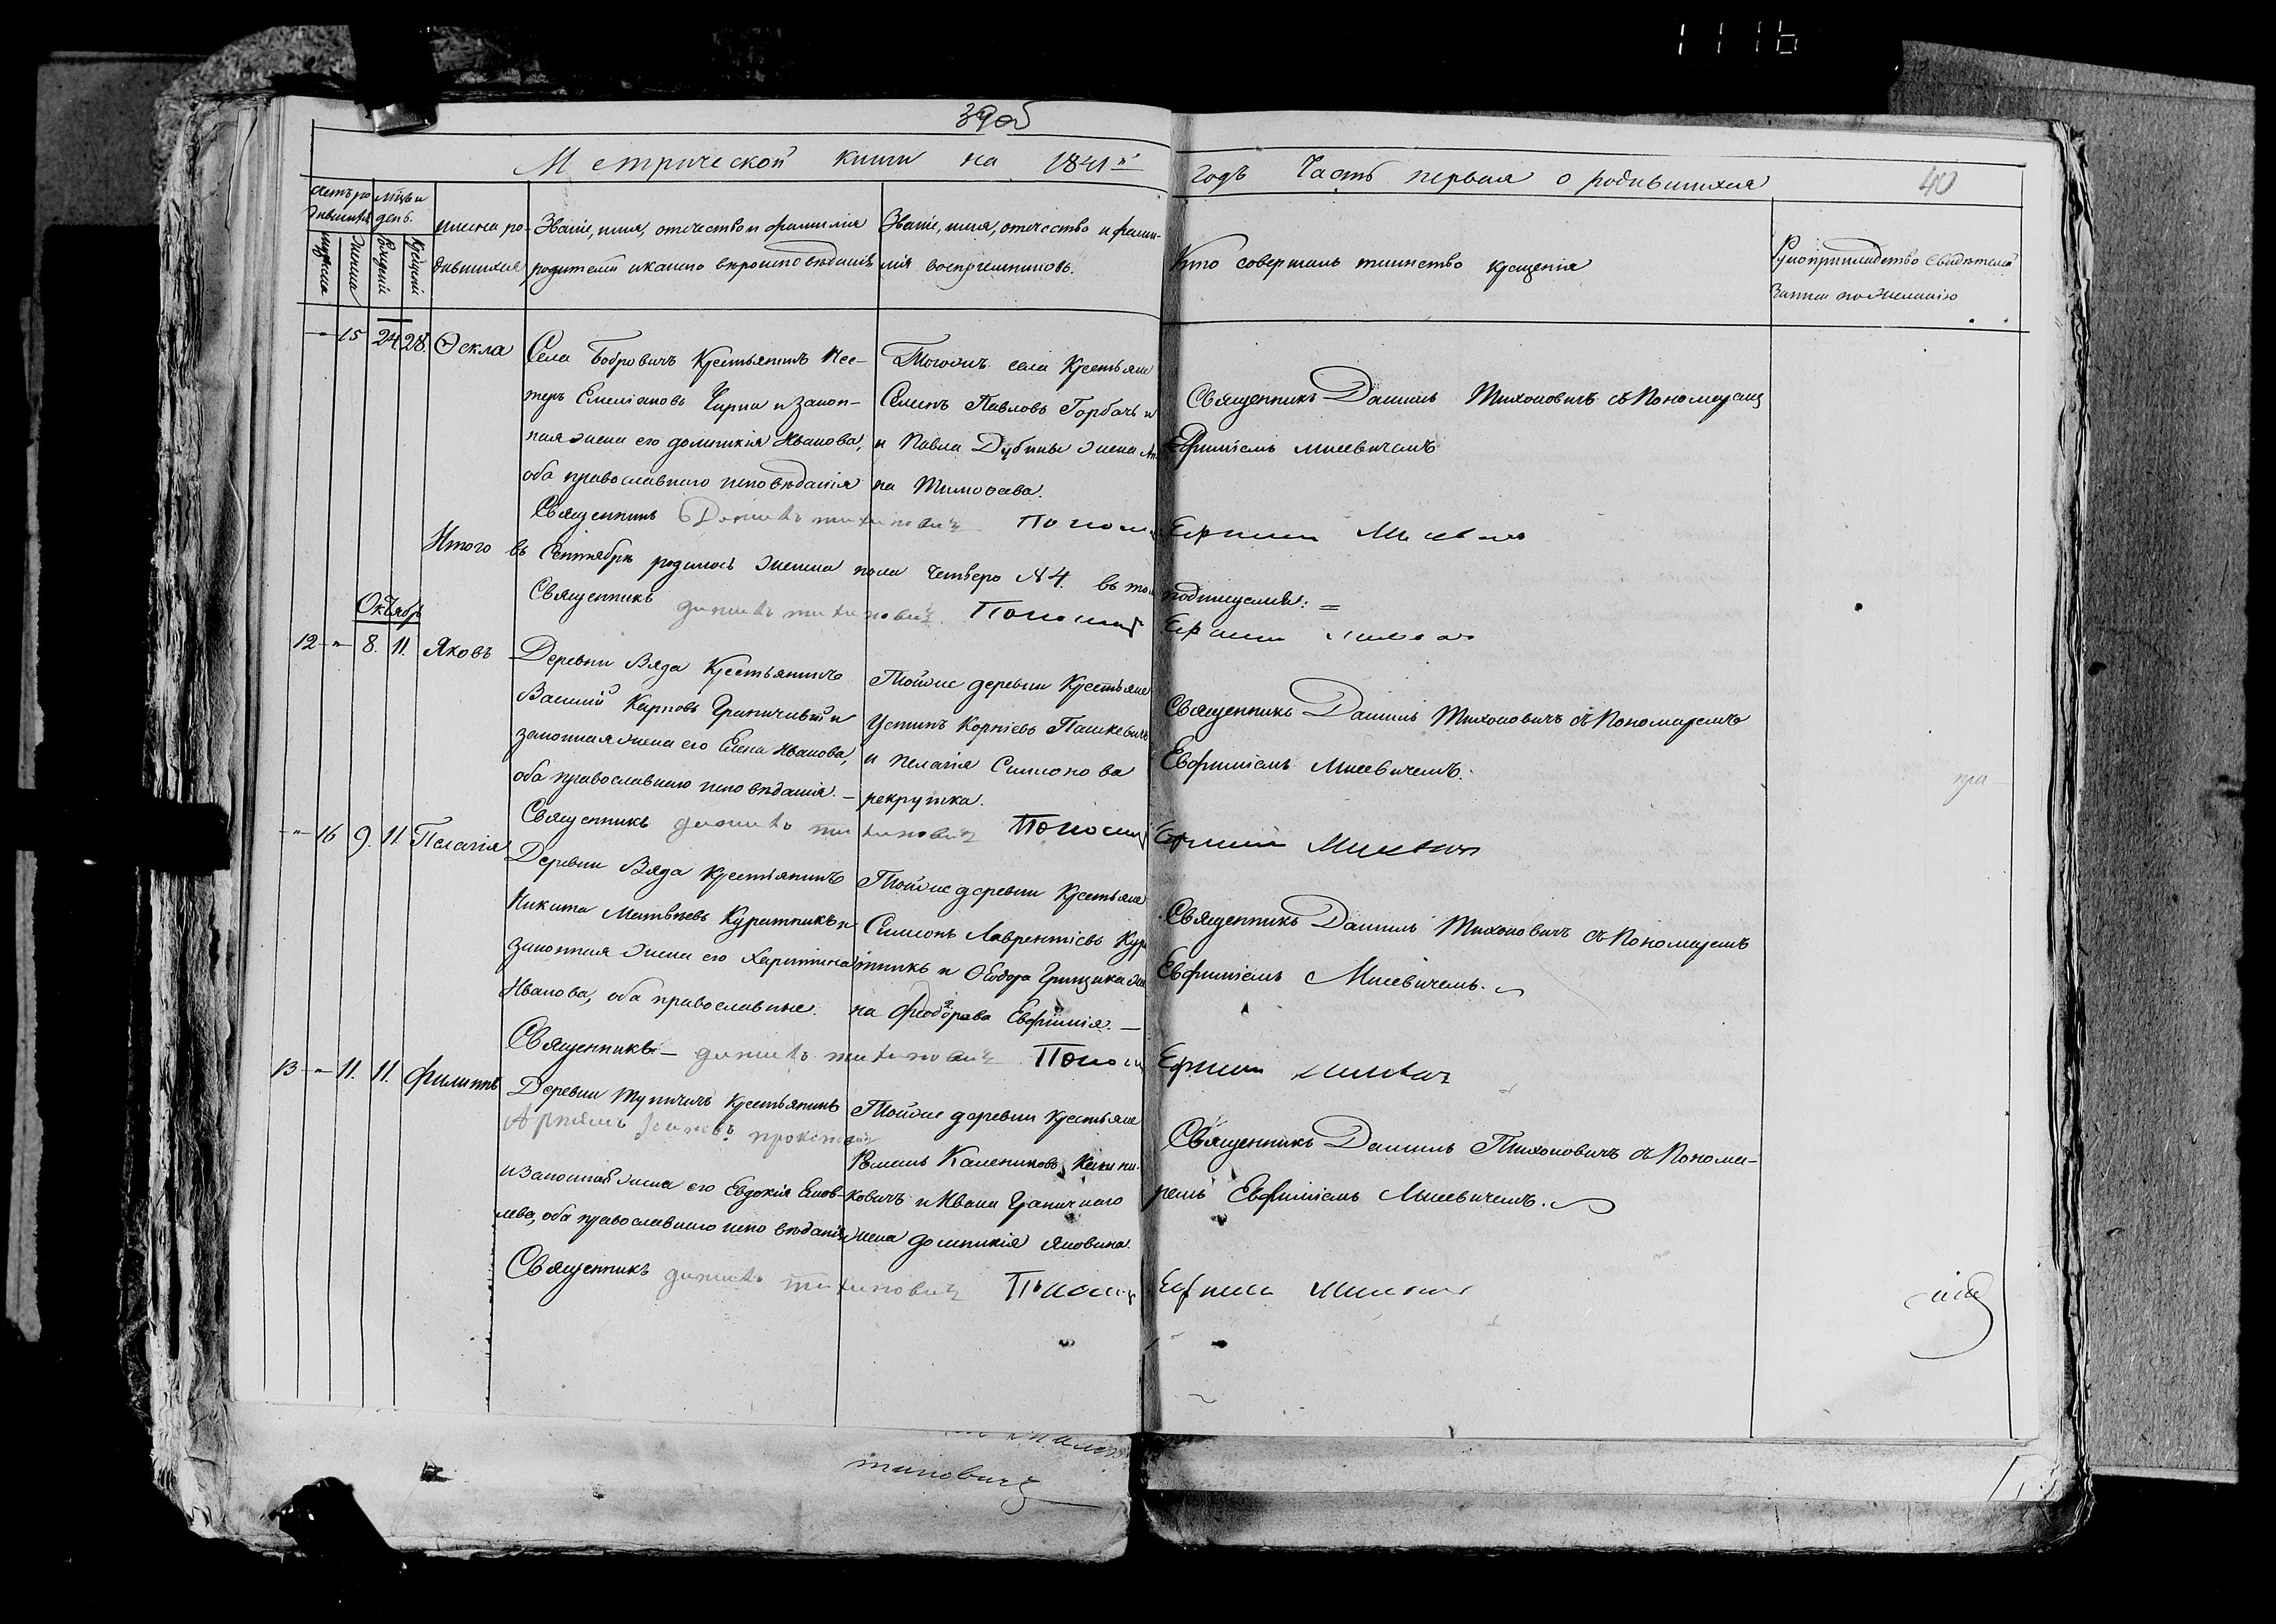 1116
39об
Метрической книги на 1841й
годъ Часть первая о родившихся
40
Счетъ ро-
дившихся
мужеска
женска
мѣсяцъ и
день.
рожденія
крещенія
имена ро-
дившихся
Званіе, имя, отчество и фамилія
родителей и какого вѣроисповѣданія
Званіе, имя, отчество и фами-
лія воспріемниковъ.
Кто совершалъ таинство крещенія
Рукоприкладство свидѣтелей
записи по желанію
15 24 28. Ѳекла
Села Бобровичъ Крестьянинъ Нес-
теръ Емеліановъ и закон-
ная жена его Домникія Иванова,
оба православнаго исповѣданія
Тогожъ села Крестьяне
Семенъ Павловъ Горбачъ и
и Павла Дубины жена Ан-
на Тимоѳеева.
Священникъ Даніилъ Тихоновичъ съ Пономаремъ
Евфиміемъ Мисевичемъ
Священникъ Даниилъ Тихоновичъ
Итого въ Сентябрѣ родилось женска пола четверо № 4. въ томъ
подписуемся:
Священникъ Даниилъ Тихоновичъ
Октябрь
12 8. 11. Яковъ
Деревни Вяда Крестьянинъ
Василій Карповъ и
законная жена его Елена Иванова,
оба православнаго исповѣданія.
Тойже деревни Крестьяне
Устинъ Корнѣевъ Пашкевичъ
и Пелагія Симонова
рекрутка.
Священникъ Даніилъ Тихоновичъ съ Пономаремъ
Евфиміемъ Мисевичемъ.
Священникъ Даниилъ Тихоновичъ
16 9. 11. Пелагія
Деревни Вяда Крестьянинъ
Никита Матвѣевъ Куратникъ и
законная жена его Харитина
Иванова, оба православные.
Тойже деревни Крестьяне
Симонъ Лаврентіевъ Кура-
тникъ и Ѳеодора Грищика же-
на Феодорова Евфимія.
Священникъ Даніилъ Тихоновичъ съ Пономаремъ
Евфиміемъ Мисевичемъ.
Священникъ Даниилъ Тихоновичъ
13 11. 11. Филиппъ
Деревни Тупичичъ Крестьянинъ
Артемъ
и законная жена его Евдокія Яков-
лева, оба православнаго исповѣданія
Тойже деревни Крестьяне
Романъ Калениковъ
и Ивана Граничнаго
жена Домникія Яковина.
Священникъ Даніилъ Тихоновичъ съ Понома-
ремъ Евфиміемъ Мисевичемъ.
Священникъ Даниилъ Тихоновичъ